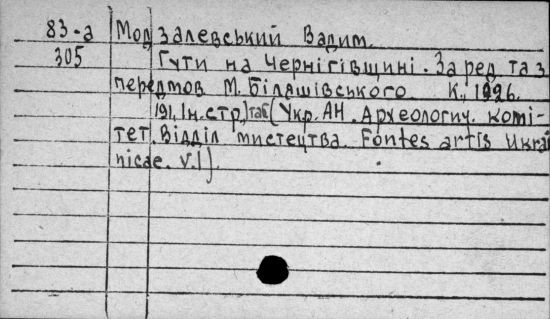 83-а Модзалевський Вадим.
305 Гути на Чернігівщині. За ред та з
передмов М. Біляшівського К., 1926.
191, Ін. стр.) таб (Укр. АН. Археологич. комі-
тет. Відділ мистецтва. Fontes artis Ukrai
nicae. v. I).